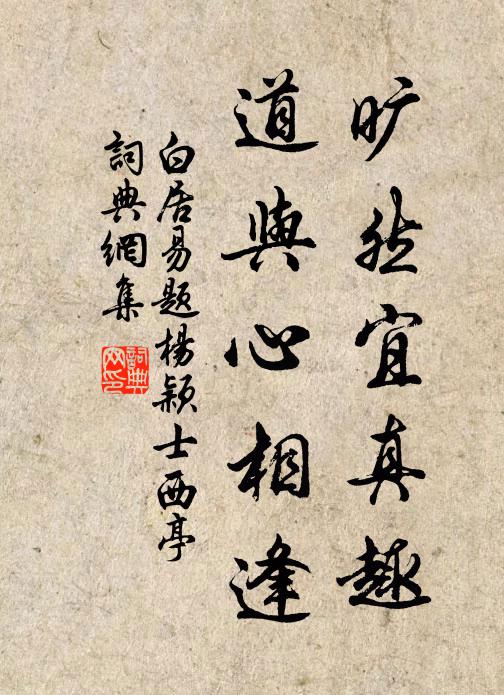 旷然宜真趣
道與心相逢
白居易题楊颖士西亭
詞典網集
詞典
网印